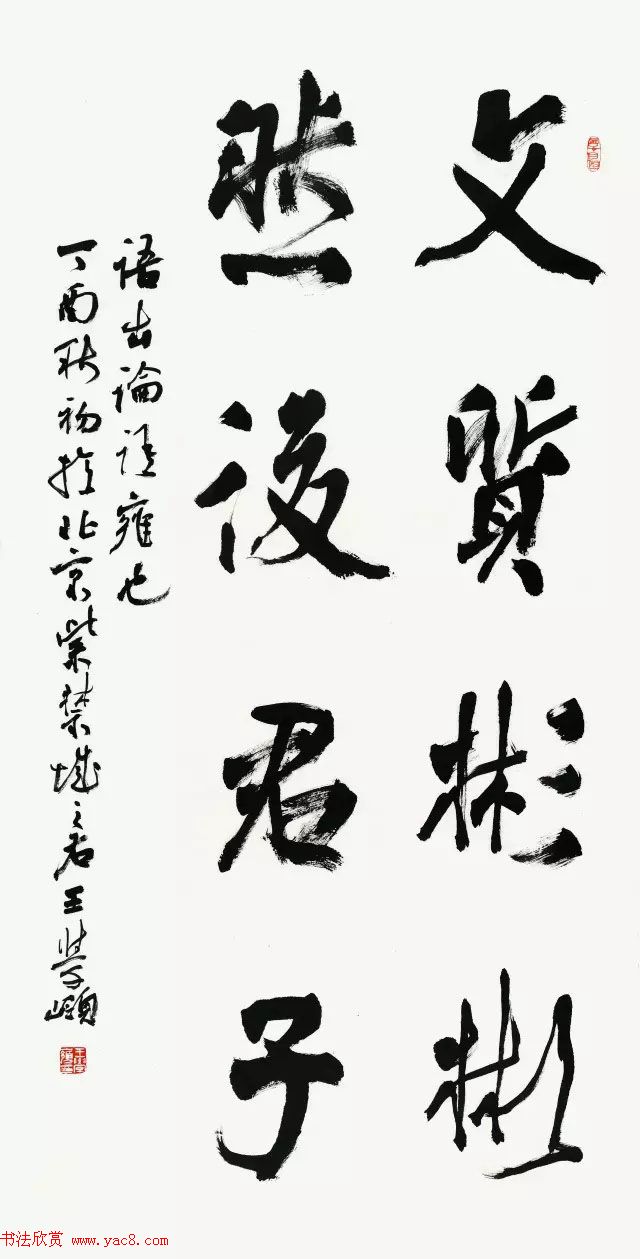 文質彬彬
然後君子
語出論語雍也
丁酉秋初於北京紫禁城之右王學嶺
书法欣赏 www.yac8.com